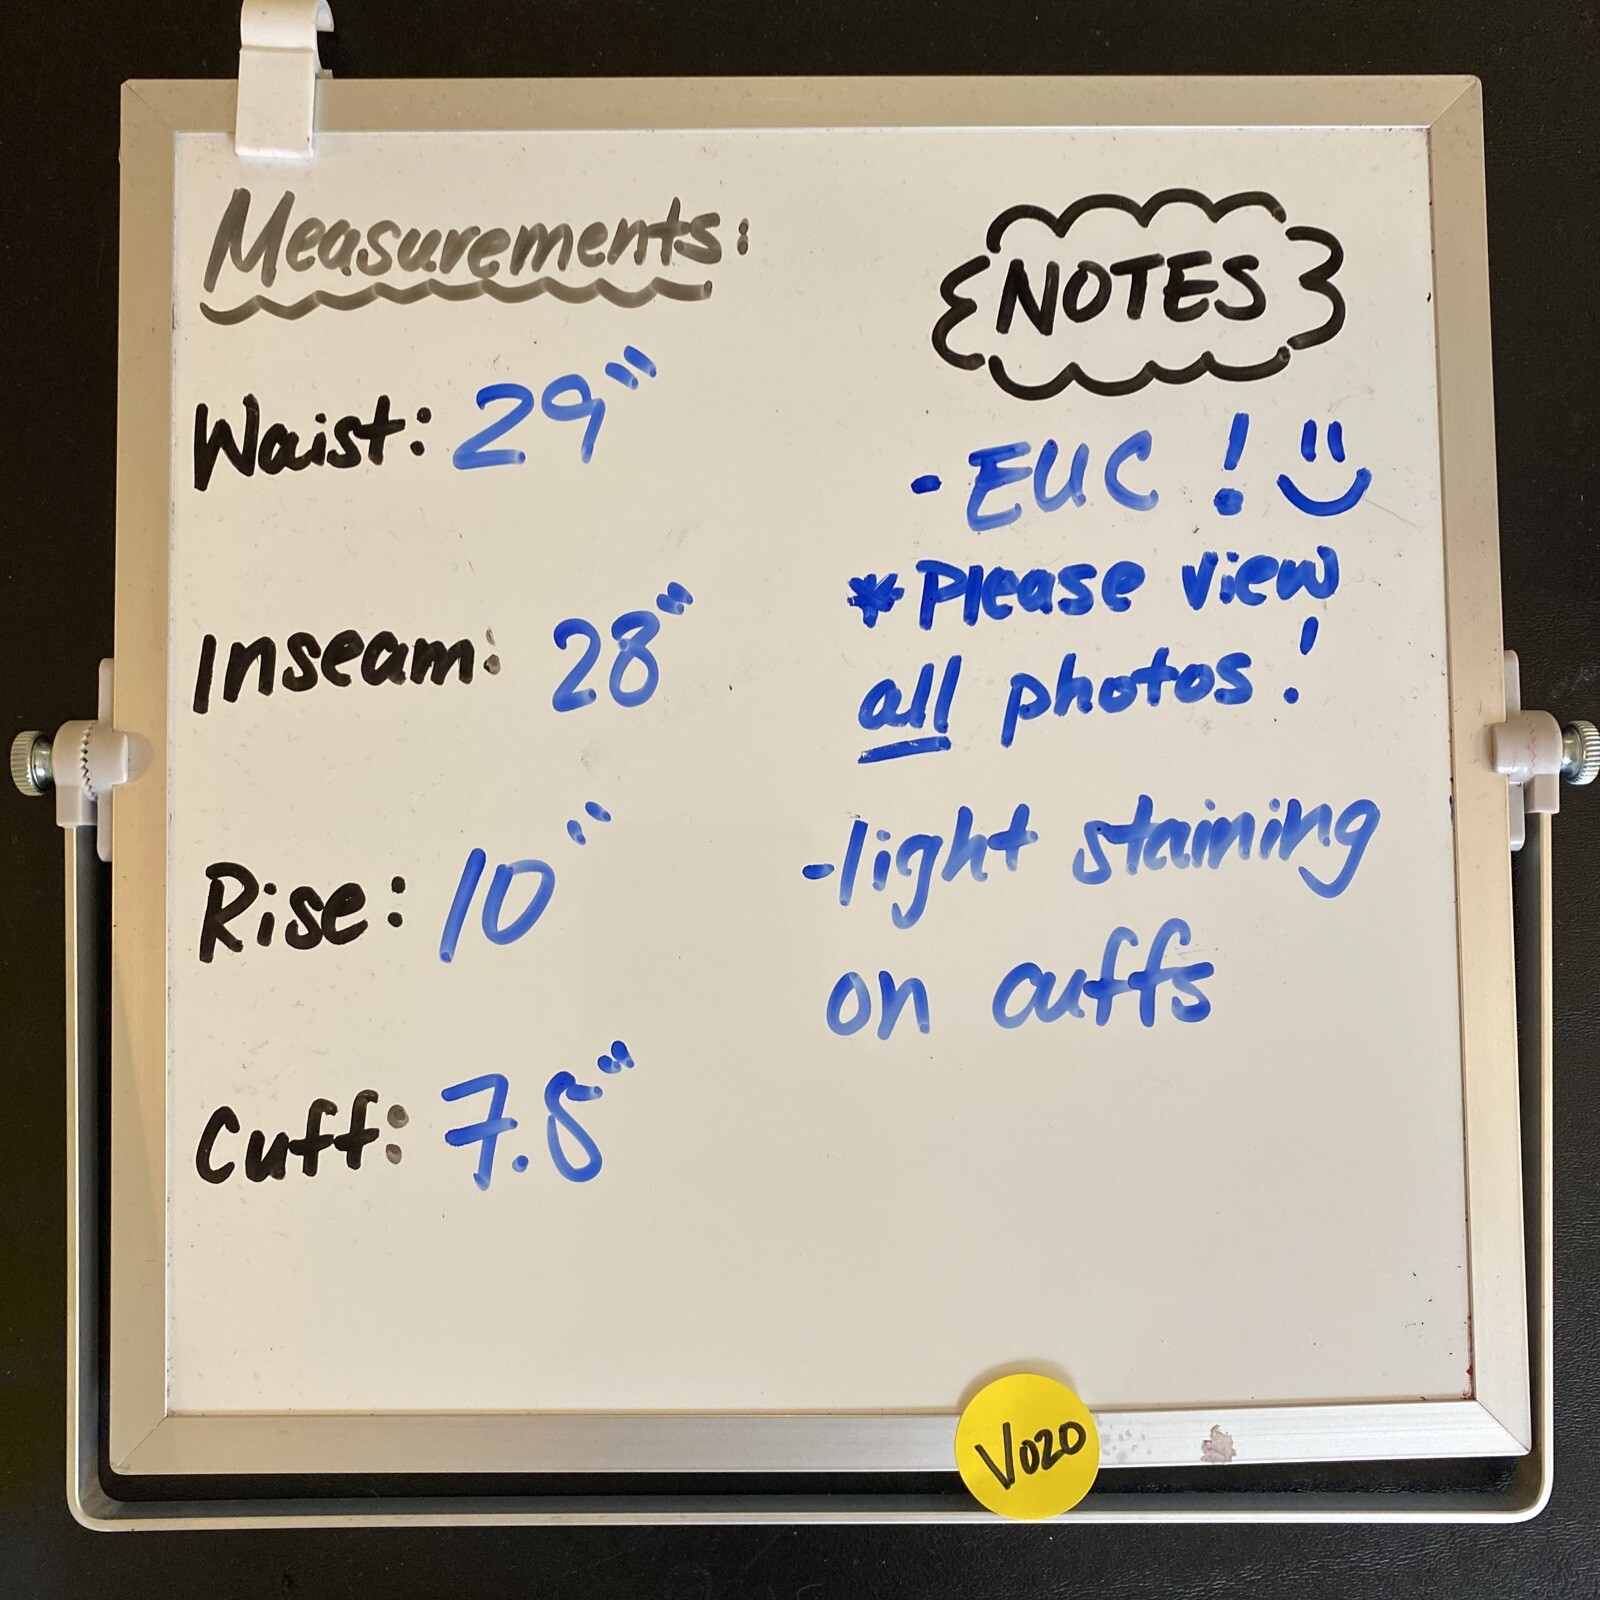 Measurements:
Waist: 29"
Inseam: 28"
Rise: 10"
Cuff: 7.8"
NOTES
- EUC!
*Please view
all photos!
-light staining
on cuffs
V020